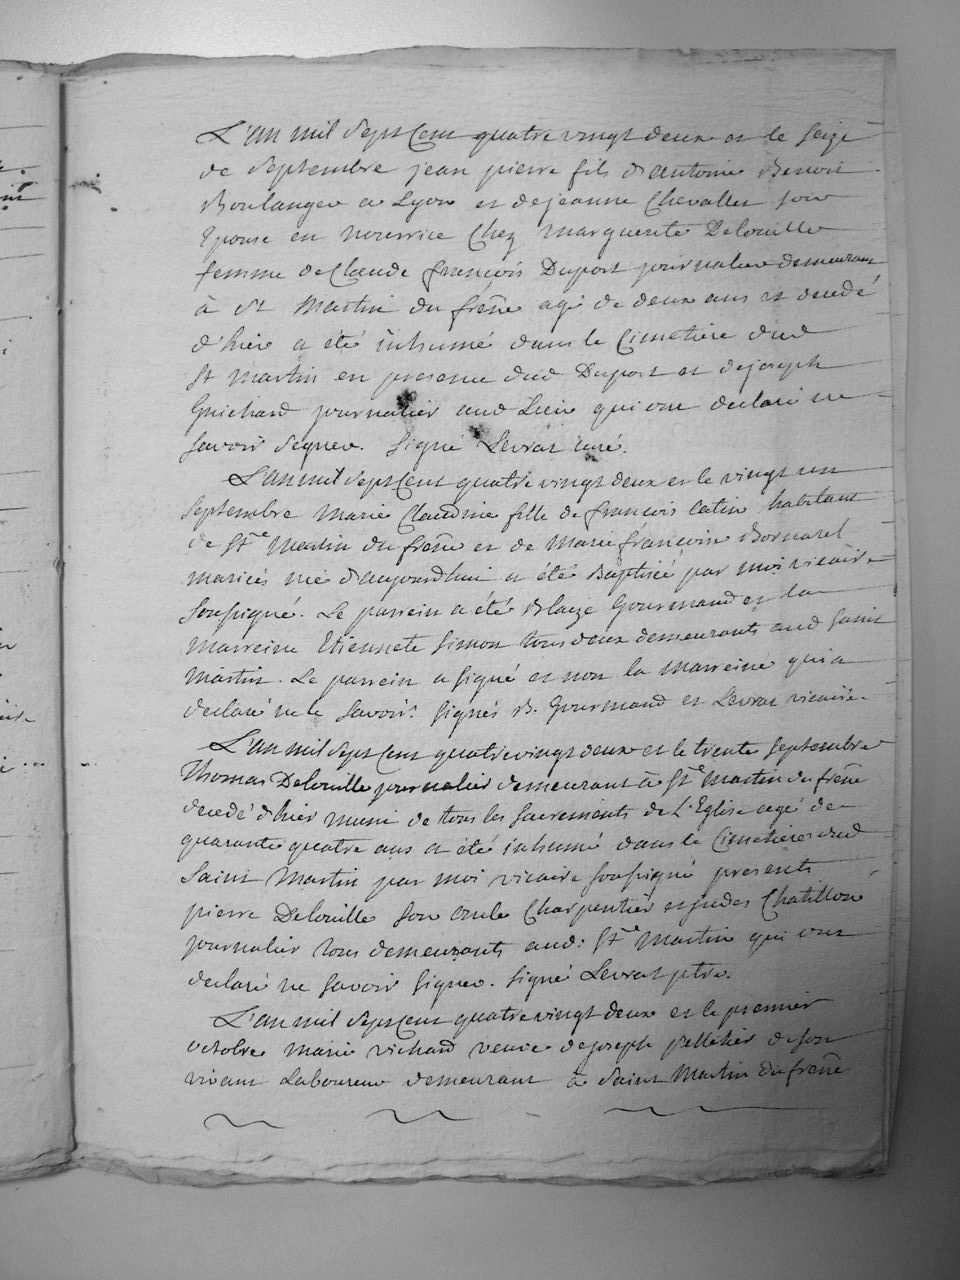 L'an mil sept Cent quatre vingt deux et le seize
de Septembre jean pierre fils d'antoine Benoit
Boulanger a Lyon et de jeanne Chevallet son
Epouse en nourrice Chez marguerite Delouille
femme de Claude françois Duport journalier demeurant
à St Martin du frêne agé de deux ans et decedé
d'hier a été inhumé dans le Cimetière dud
St Martin en presence dud Duport et de joseph
Guichard journalier aud Lieu qui ont declaré ne
savoir signer. Signé Levrat curé.
L'an mil Sept Cent quatre vingt deux et le vingt un
Septembre Marie Claudine fille de françois Catin habitant
de St Martin du frêne et de Marie françoise Bornarel
mariés née d'aujourdhui a été Baptisée par moi vicaire
soussigné. Le parrein a été Blaize Gourmand et la
Marreine Etiennete Simon tous deux demeurants aud Saint
Martin. Le parrein a signé et non la Marreine qui a
declaré ne le savoir. Signés B. Gourmand et Levrat vicaire.
L'an mil Sept Cent quatre vingt deux et le trente Septembre
Thomas Delouille journalier demeurant à St Martin du frêne
decedé d'hier muni de tous les Sacrements de L'Eglise agé de
quarante quatre ans a été inhumé dans le Cimetiere dud
Saint Martin par moi vicaire soussigné presents
pierre Delouille son oncle Charpentier et judes Chatillon
journalier tous demeurants aud: St Martin qui ont
declaré ne savoir signer. Signé Levrat ptre.
L'an mil Sept Cent quatre vingt deux et le premier
octobre Marie vichard veuve de joseph pelletier de son
vivant Laboureur demeurant à Saint Martin du frêne